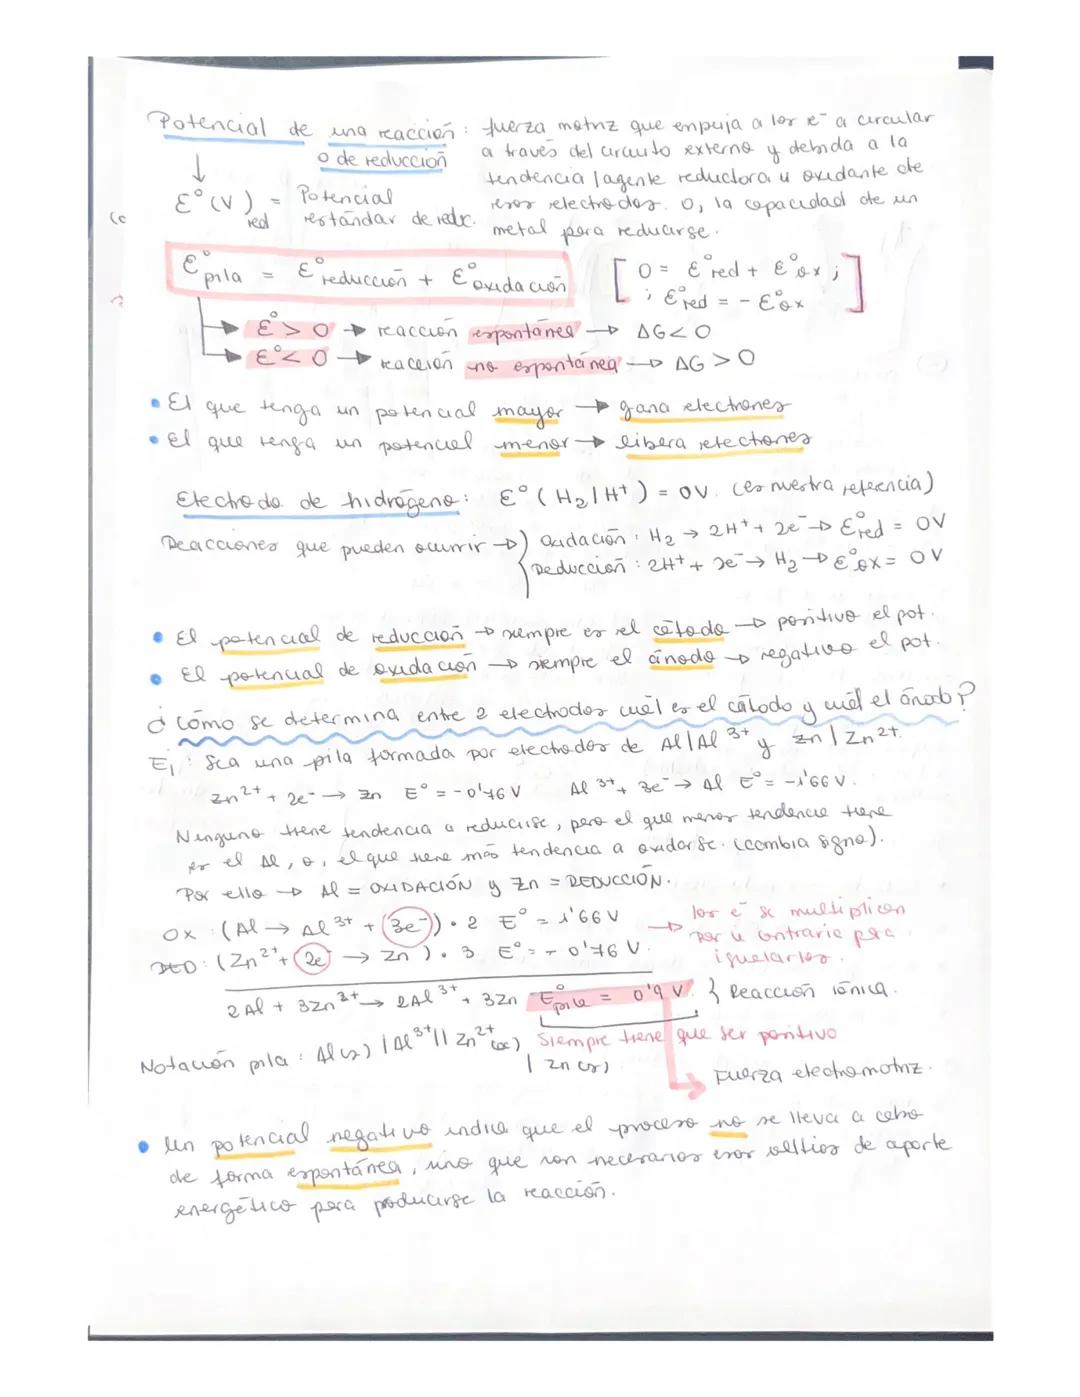 Potencial de una reacción : fuerza motriz que empuja a los e⁻ a circular
o de reducción a través del circuito externo y debida a la
↓ tendencia / agente reductora u oxidante de
Ɛ°(V)red = Potencial estándar de redc. esos electrodos. O, la capacidad de un
metal para reducirse.
Ɛ°pila = Ɛ°reducción + Ɛ°oxidación [ 0 = Ɛ°red + Ɛ°ox ;
; Ɛ°red = - Ɛ°ox ]
→ Ɛ° > 0 → reacción espontánea → ΔG < 0
→ Ɛ° < 0 → reacción no espontánea → ΔG > 0
• El que tenga un potencial mayor → gana electrones
• El que tenga un potencial menor → libera electrones
Electrodo de hidrógeno: Ɛ° (H₂ | H⁺) = 0V. (es nuestra referencia)
Reacciones que pueden ocurrir → { Oxidación : H₂ → 2H⁺ + 2e⁻ → Ɛ°red = 0V
Reducción : 2H⁺ + 2e⁻ → H₂ → Ɛ°ox = 0V
• El potencial de reducción → siempre es el cátodo → positivo el pot.
• El potencial de oxidación → siempre el ánodo → negativo el pot.
¿Cómo se determina entre 2 electrodos cuál es el cátodo y cuál el ánodo?
Ej: Sea una pila formada por electrodos de Al|Al³⁺ y Zn|Zn²⁺.
Zn²⁺ + 2e⁻ → Zn E° = -0'76 V Al³⁺ + 3e⁻ → Al E° = -1'66 V.
Ninguno tiene tendencia a reducirse, pero el que menor tendencia tiene
es el Al, o, el que tiene más tendencia a oxidarse. (cambia signo).
Por ello → Al = OXIDACIÓN y Zn = REDUCCIÓN.
OX : (Al → Al³⁺ + 3e⁻) · 2 E° = 1'66 V → los e⁻ se multiplican
RED : (Zn²⁺ + 2e⁻ → Zn ) · 3 E° = - 0'76 V. por u contrario para
igualarlos.
2Al + 3Zn²⁺ → 2Al³⁺ + 3Zn E°pila = 0'9 V. } Reacción iónica.
Notación pila : Al(s) | Al³⁺ || Zn²⁺(ac) Siempre tiene que ser positivo
| Zn(s)
Fuerza electromotriz.
• Un potencial negativo indica que el proceso no se lleva a cabo
de forma espontánea, sino que son necesarios esos voltios de aporte
energético para producirse la reacción.